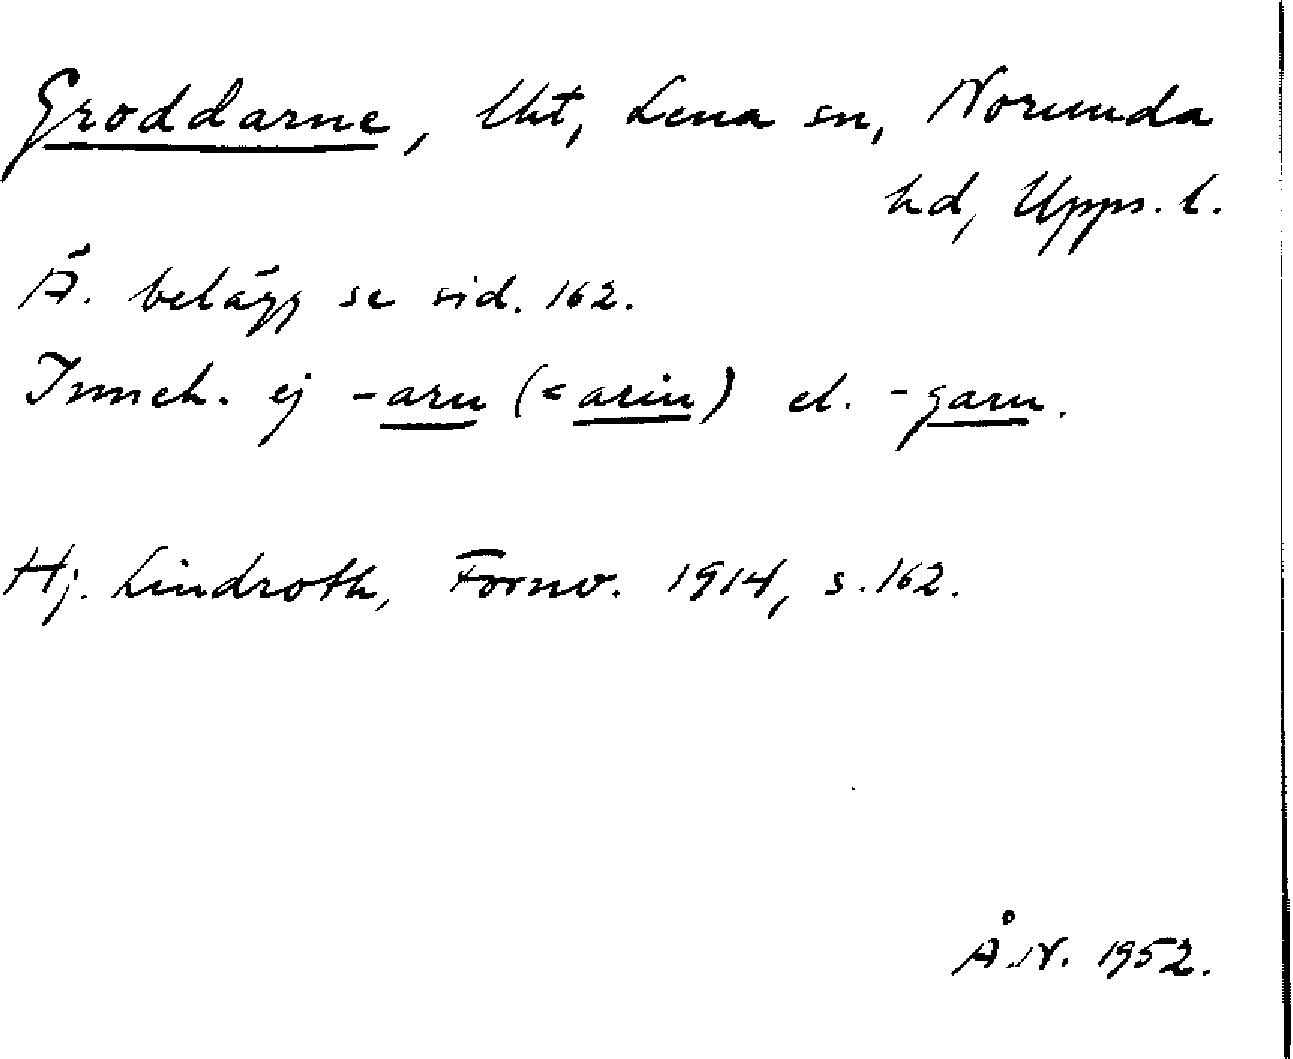 Groddarne, Uht, Lena sn, Norunda
hd, Upps. l.
Ä. belägg se sid. 162.
Inneh. ej -arn (< arin) el. -garn.
Hj. Lindroth, Fornv. 1914, s. 162.
Å.N. 1952.